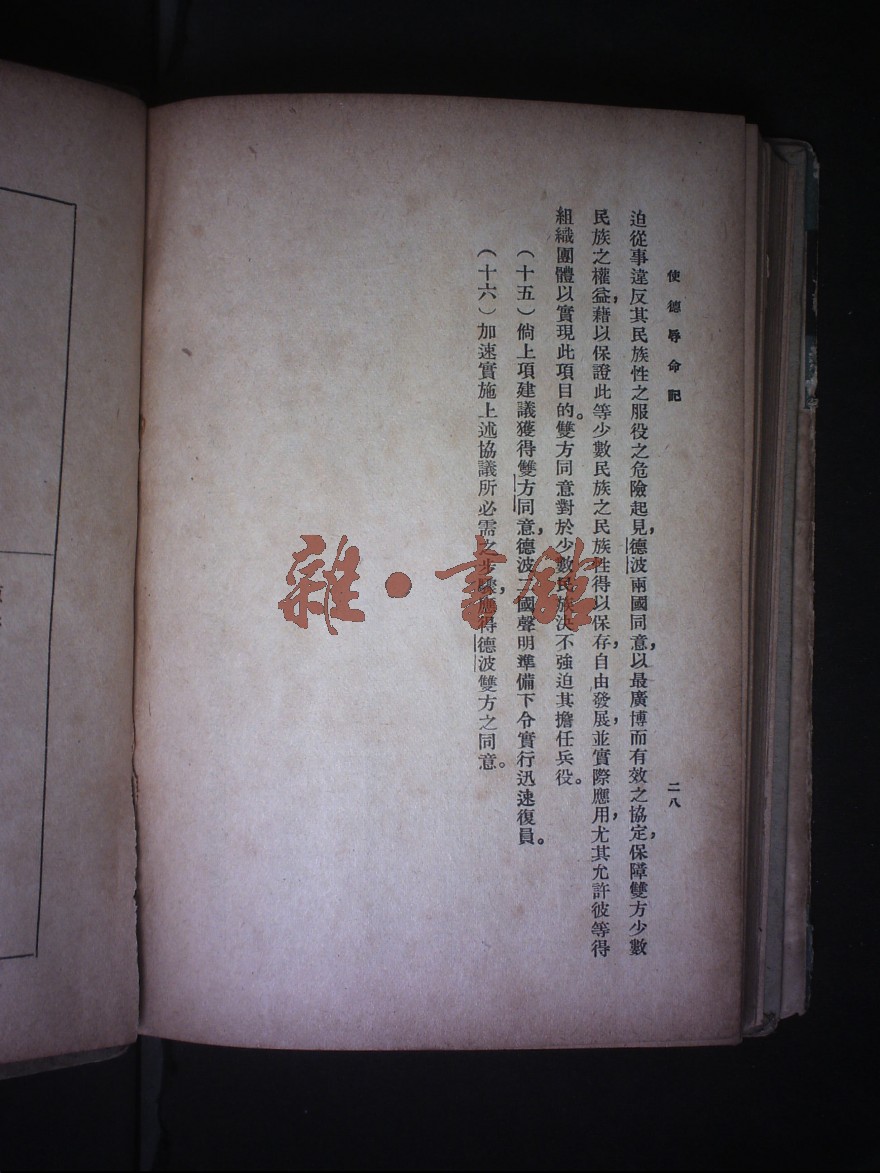 使德辱命記
二八
迫從事違反其民族性之服役之危險起見，德波兩國同意，以最廣博而有效之協定，保障雙方少數
民族之權益，藉以保證此等少數民族之民族性得以保存，自由發展，並實際應用，尤其允許彼等得
組織團體以實現此項目的。雙方同意對於少數民族決不強迫其擔任兵役。
（十五）倘上項建議獲得雙方同意，德波二國聲明準備下令實行迅速復員。
（十六）加速實施上述協議所必需之步驟，應得德波雙方之同意。
雜·書館